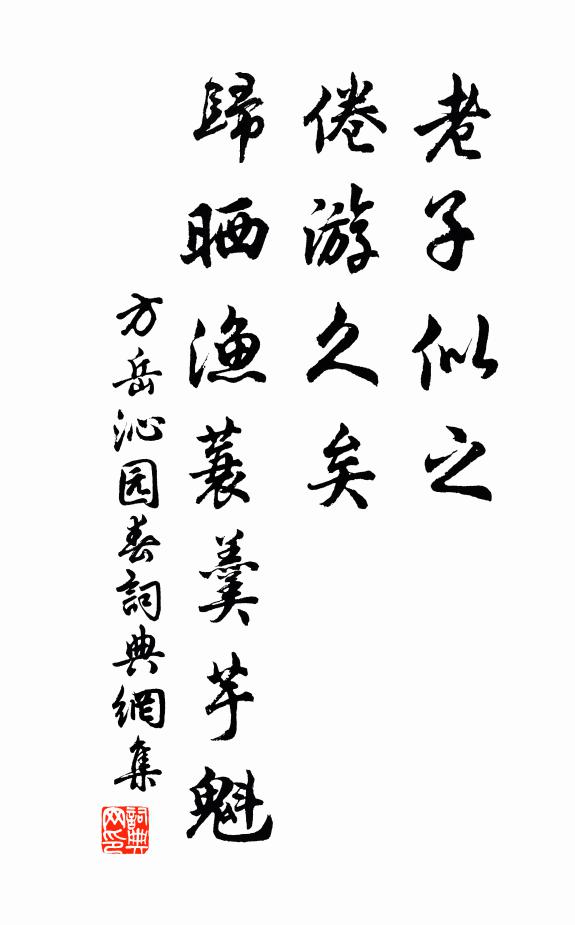 老子似之
倦游久矣
歸晒漁蓑羹芋魁
方岳沁园春詞典網集
詞典网印